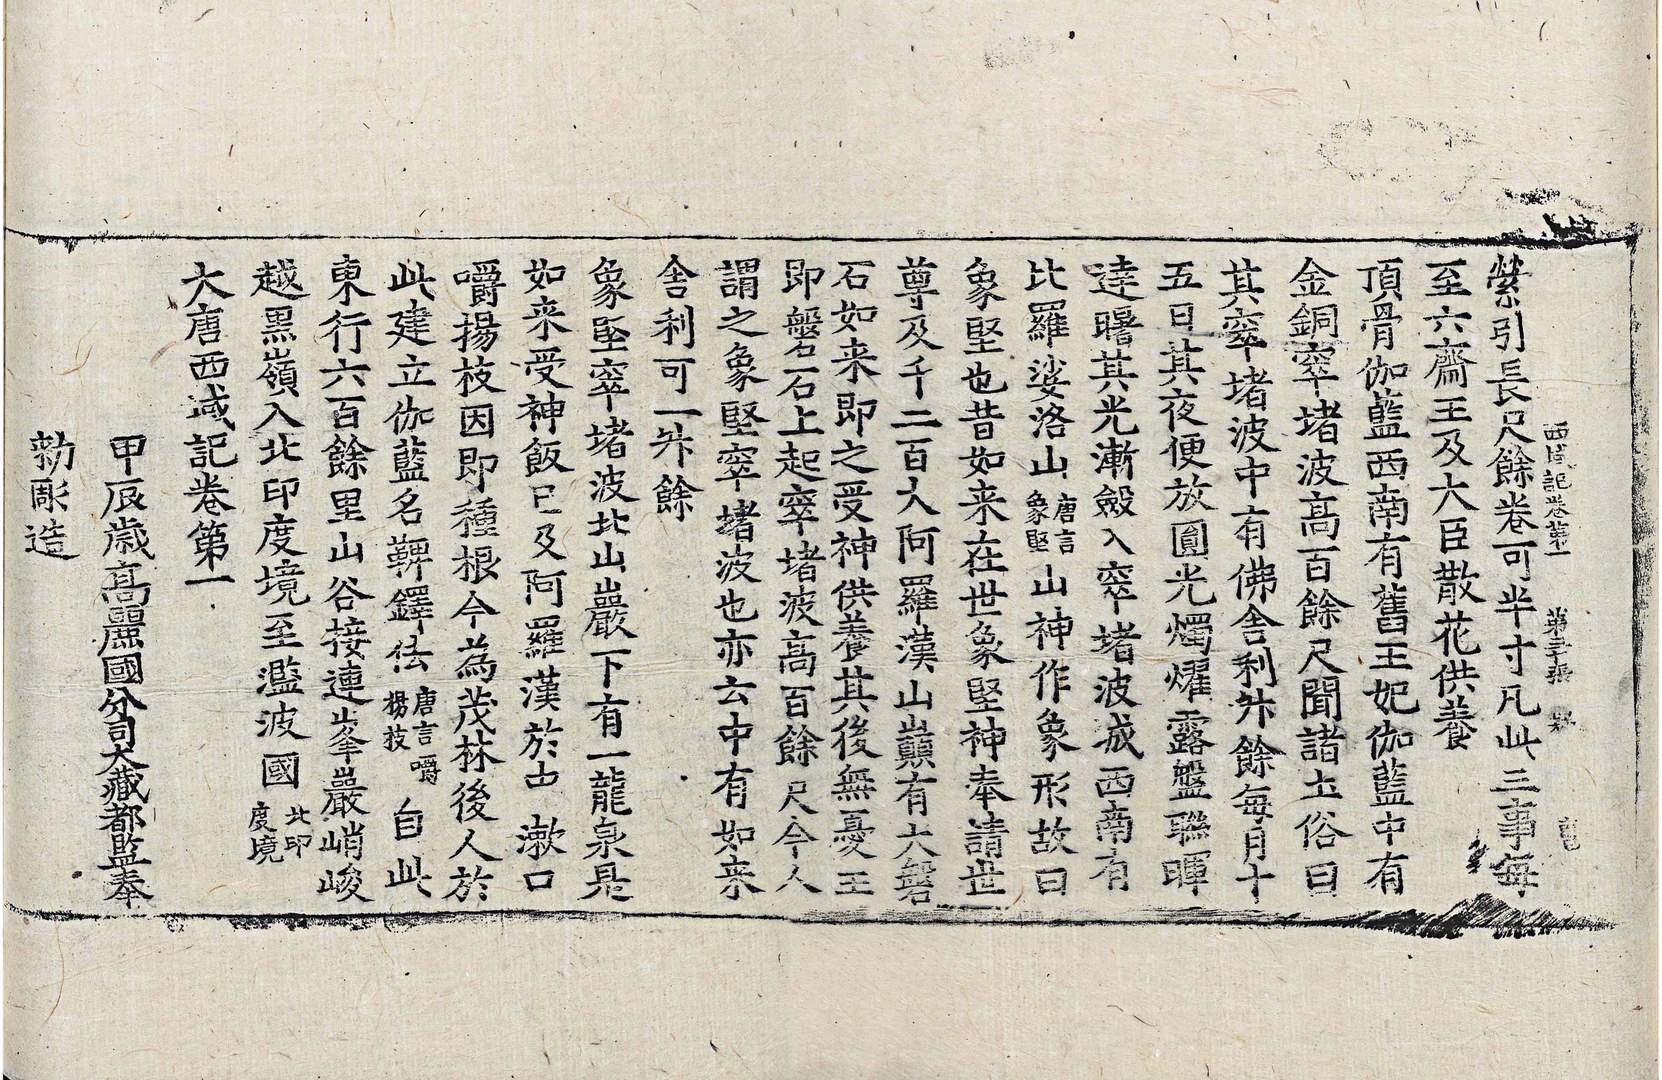 西域記卷第一 第三張
縈引長尺餘卷可半寸凡此三事每
至六齋王及大臣散花供養
頂骨伽藍西南有舊王妃伽藍中有
金銅窣堵波高百餘尺聞諸土俗曰
其窣堵波中有佛舍利升餘每月十
五日其夜便放圓光燭燿露盤聯暉
達曙其光漸斂入窣堵波城西南有
比羅娑洛山唐言象堅山神作象形故曰
象堅也昔如来在世象堅神奉請世
尊及千二百大阿羅漢山巓有大磐
石如来即之受神供養其後無憂王
即磐石上起窣堵波高百餘尺今人
謂之象堅窣堵波也亦云中有如来
舍利可一升餘
象堅窣堵波北山巖下有一龍泉是
如来受神飯已及阿羅漢於中漱口
嚼揚枝因即種根今為茂林後人於
此建立伽藍名鞞鐸佉唐言嚼楊枝自此
東行六百餘里山谷接連峯巖峭峻
越黑嶺入北印度境至濫波國北印度境
大唐西域記卷第一
甲辰歲高麗國分司大藏都監奉
勅彫造